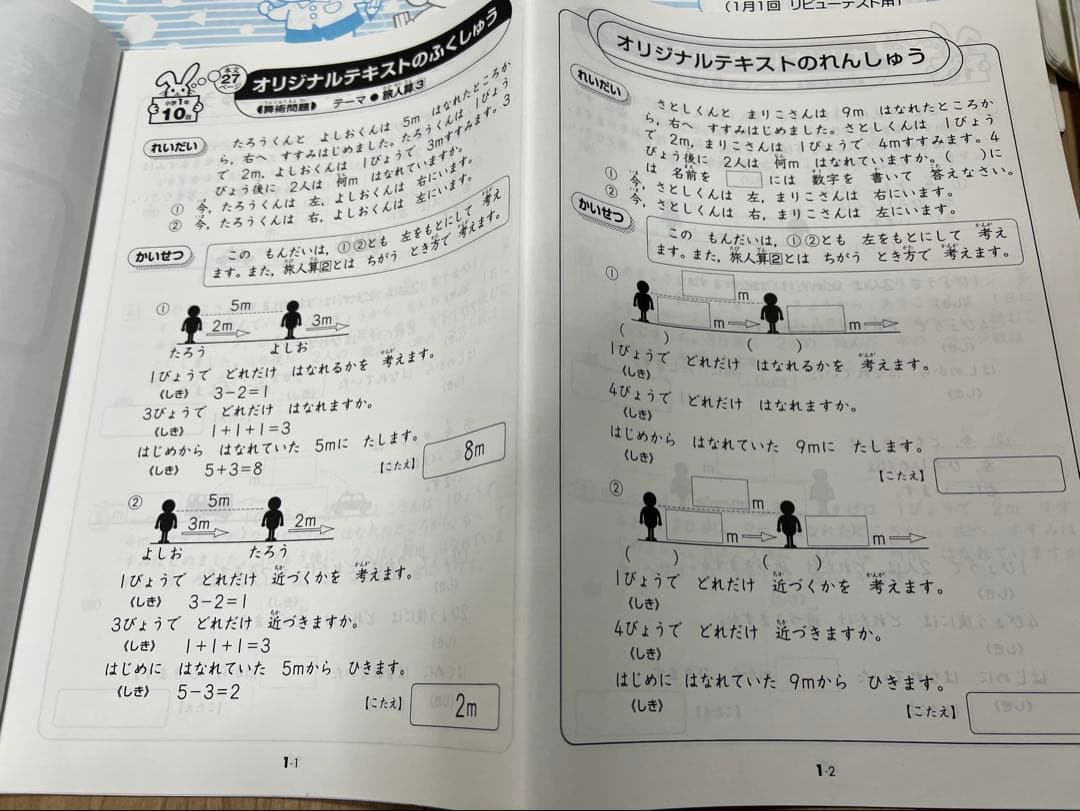 (1月1回 リビューテスト用)
本文
27
ページ
小学1年
10回
オリジナルテキストのふくしゅう
【算術問題】 テーマ ● 旅人算③
れいだい
たろうくんと よしおくんは 5m はなれたところか
ら, 右へ すすみはじめました。たろうくんは 1びょう
で 2m, よしおくんは 1びょうで 3mすすみます。3
びょう後に 2人は 何m はなれていますか。
① 今, たろうくんは 左, よしおくんは 右にいます。
② 今, たろうくんは 右, よしおくんは 左にいます。
かいせつ
この もんだいは, ①②とも 左をもとにして 考え
ます。また, 旅人算②とは ちがう とき方で 考えます。
①
5m
2m
3m
たろう
よしお
1びょうで どれだけ はなれるかを 考えます。
〈しき〉 3-2=1
3びょうで どれだけ はなれますか。
〈しき〉 1+1+1=3
はじめから はなれていた 5mに たします。
〈しき〉 5+3=8
【こたえ】 8m
②
5m
3m
2m
よしお
たろう
1びょうで どれだけ 近づくかを 考えます。
〈しき〉 3-2=1
3びょうで どれだけ 近づきますか。
〈しき〉 1+1+1=3
はじめに はなれていた 5mから ひきます。
〈しき〉 5-3=2
【こたえ】 2m
1-1
オリジナルテキストのれんしゅう
れいだい
さとしくんと まりこさんは 9m はなれたところか
ら, 右へ すすみはじめました。さとしくんは 1びょう
で 2m, まりこさんは 1びょうで 4mすすみます。4
びょう後に 2人は 何m はなれていますか。( )に
は 名前を □ には 数字を 書いて 答えなさい。
① 今, さとしくんは 左, まりこさんは 右にいます。
② 今, さとしくんは 右, まりこさんは 左にいます。
かいせつ
この もんだいは, ①②とも 左をもとにして 考え
ます。また, 旅人算②とは ちがう とき方で 考えます。
①
m
m
m
( )
( )
1びょうで どれだけ はなれるかを 考えます。
〈しき〉
4びょうで どれだけ はなれますか。
〈しき〉
はじめから はなれていた 9mに たします。
〈しき〉
【こたえ】
②
m
m
m
( )
( )
1びょうで どれだけ 近づくかを 考えます。
〈しき〉
4びょうで どれだけ 近づきますか。
〈しき〉
はじめに はなれていた 9mから ひきます。
〈しき〉
【こたえ】
1-2